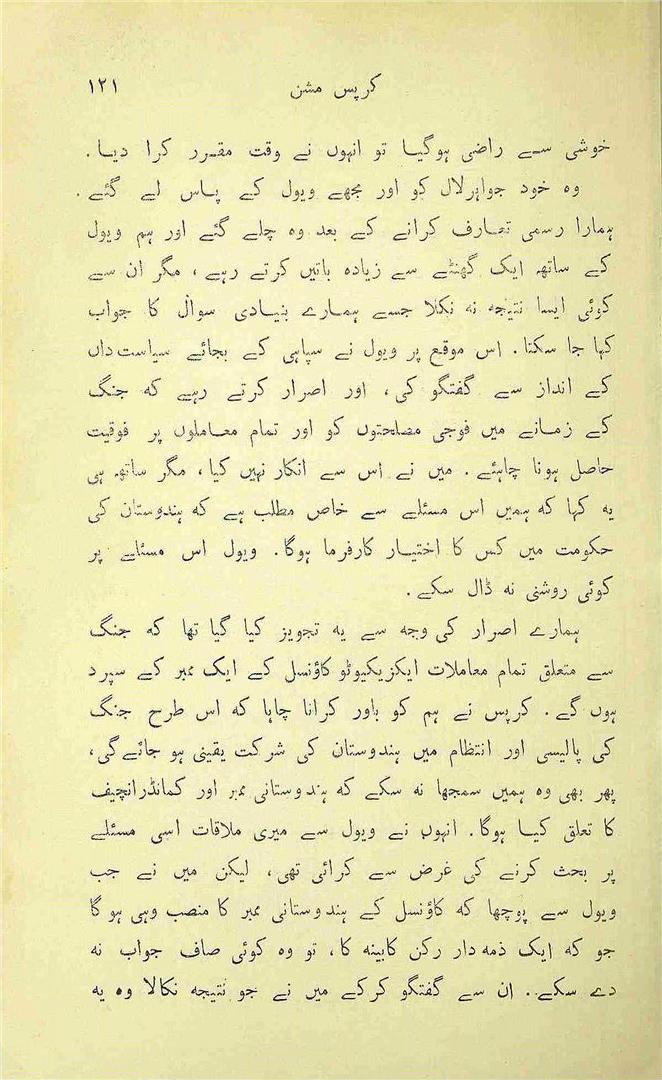 کرپس مشن ۱۲۱
خوشی سے راضی ہوگیا تو انہوں نے وقت مقرر کرا دیا۔
وہ خود جواہرلال کو اور مجھے ویول کے پاس لے گئے۔
ہمارا رسمی تعارف کرانے کے بعد وہ چلے گئے اور ہم ویول
کے ساتھ ایک گھنٹے سے زیادہ باتیں کرتے رہے، مگر ان سے
کوئی ایسا نتیجہ نہ نکلا جسے ہمارے بنیادی سوال کا جواب
کہا جا سکتا۔ اس موقع پر ویول نے سپاہی کے بجائے سیاست داں
کے انداز سے گفتگو کی، اور اصرار کرتے رہے کہ جنگ
کے زمانے میں فوجی مصلحتوں کو اور تمام معاملوں پر فوقیت
حاصل ہونا چاہئے۔ میں نے اس سے انکار نہیں کیا، مگر ساتھ ہی
یہ کہا کہ ہمیں اس مسئلے سے خاص مطلب ہے کہ ہندوستان کی
حکومت میں کس کا اختیار کارفرما ہوگا۔ ویول اس مسئلے پر
کوئی روشنی نہ ڈال سکے۔
ہمارے اصرار کی وجہ سے یہ تجویز کیا گیا تھا کہ جنگ
سے متعلق تمام معاملات ایکزیکیوٹو کاؤنسل کے ایک ممبر کے سپرد
ہوں گے۔ کرپس نے ہم کو باور کرانا چاہا کہ اس طرح جنگ
کی پالیسی اور انتظام میں ہندوستان کی شرکت یقینی ہو جائے گی،
پھر بھی وہ ہمیں سمجھا نہ سکے کہ ہندوستانی ممبر اور کمانڈرانچیف
کا تعلق کیا ہوگا۔ انہوں نے ویول سے میری ملاقات اسی مسئلے
پر بحث کرنے کی غرض سے کرائی تھی، لیکن میں نے جب
ویول سے پوچھا کہ کاؤنسل کے ہندوستانی ممبر کا منصب وہی ہو گا
جو کہ ایک ذمہ دار رکن کابینہ کا، تو وہ کوئی صاف جواب نہ
دے سکے۔. ان سے گفتگو کرکے میں نے جو نتیجہ نکالا وہ یہ